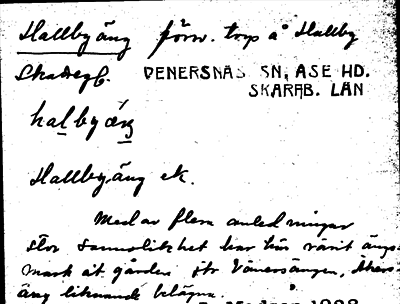 Hallbyäng förv. torp å Hallby
Skattegb. VÄNERSNÄS SN, ÅSE HD.
SKARAB. LÄN
halbyäŋ
Hallbyäng ek.
Med av flera anledningar
stor sannolikhet har här varit ängs-
mark åt gården jfr Vänersängen, Åkers-
äng liknande belägna.